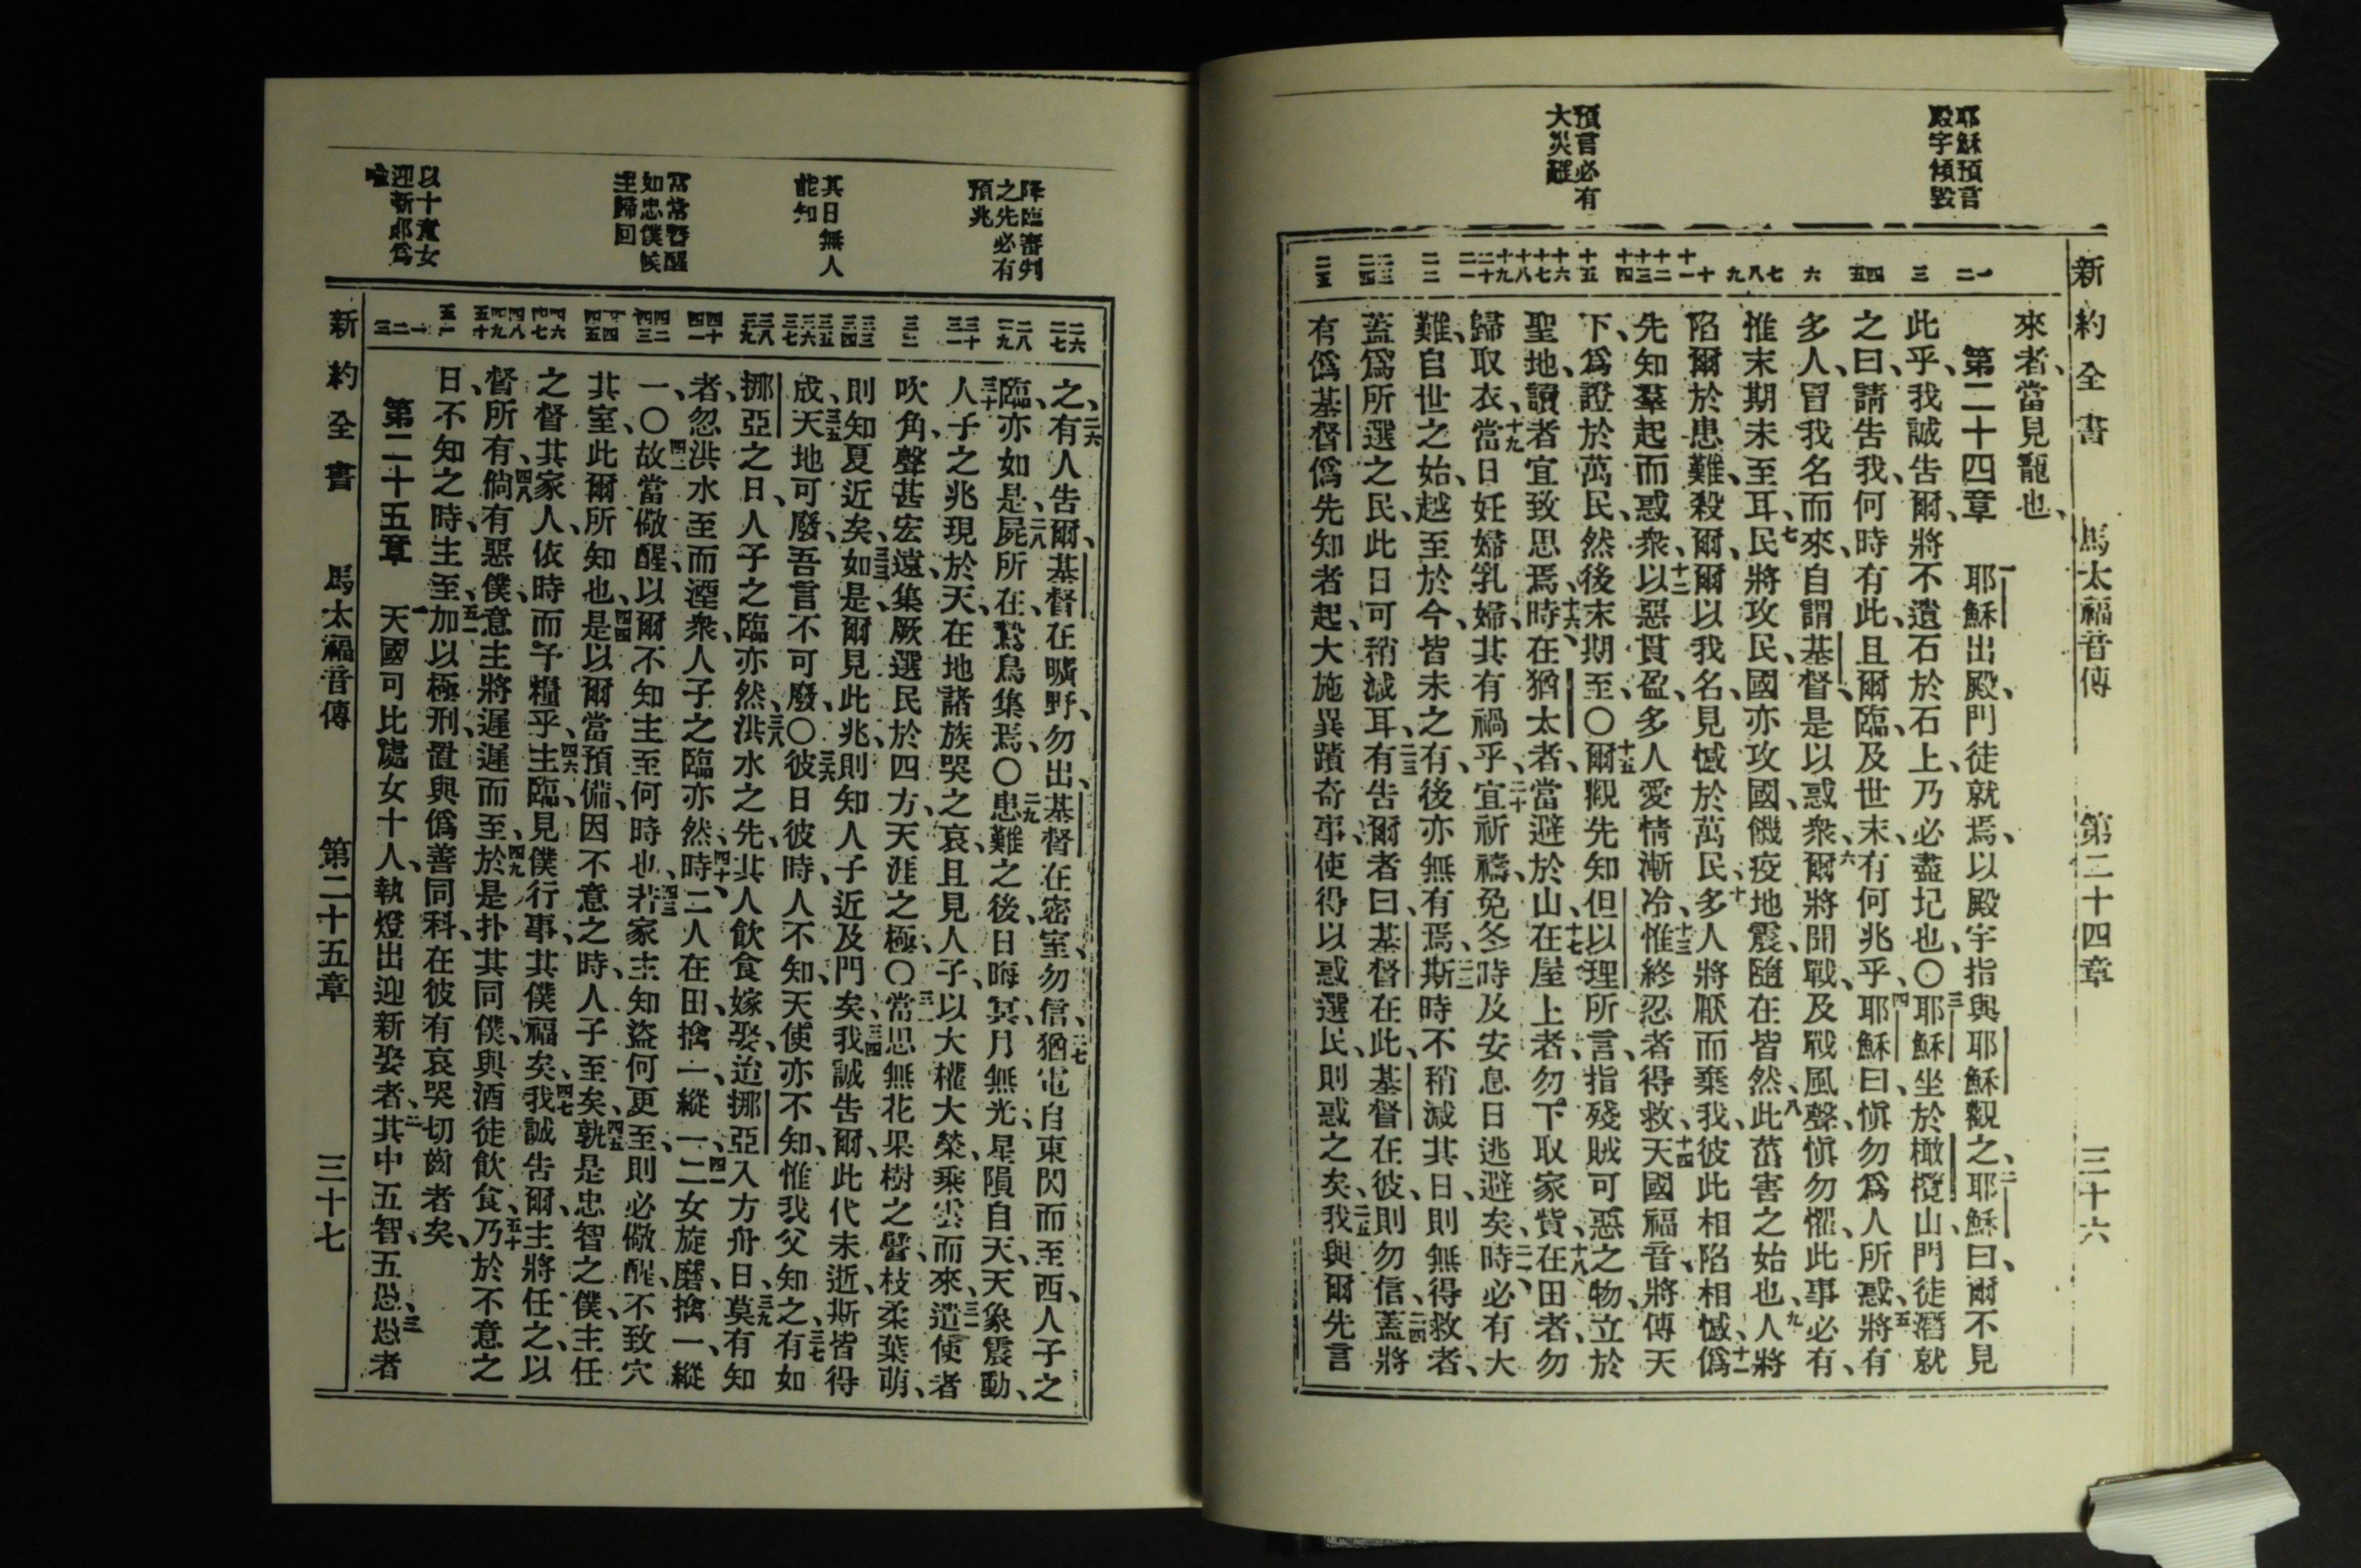 耶穌預言
殿宇傾毀
預言必有
大災難
新約全書 馬太福音傳 第二十四章 三十六
一 二 三 四 五 六 七 八 九 十 十一 十二 十三 十四 十五 十六 十七 十八 十九 二十 二一 二二 二三 二四 二五
來者、當見寵也、
第二十四章 一耶穌出殿、門徒就焉、以殿宇指與耶穌觀之、二耶穌曰、爾不見
此乎、我誠告爾、將不遺石於石上、乃必盡圮也、〇三耶穌坐於橄欖山、門徒潛就
之曰、請告我、何時有此、且爾臨、及世末、有何兆乎、四耶穌曰、愼勿爲人所惑、五將有
多人、冒我名而來、自謂基督、是以惑衆、六爾將聞戰、及戰風聲、愼勿懼、此事必有、
惟末期未至耳、七民將攻民、國亦攻國、饑疫地震、隨在皆然、八此菑害之始也、九人將
陷爾於患難、殺爾、爾以我名、見憾於萬民、十多人將厭而棄我、彼此相陷相憾、十一僞
先知羣起而惑衆、十二以惡貫盈、多人愛情漸冷、十三惟終忍者得救、十四天國福音、將傳天
下、爲證於萬民、然後末期至、〇十五爾觀先知但以理所言、指殘賊可惡之物、立於
聖地、讀者宜致思焉、十六時在猶太者、當避於山、十七在屋上者、勿下取家貲、十八在田者、勿
歸取衣、十九當日妊婦乳婦、其有禍乎、二十宜祈禱、免冬時及安息日逃避矣、二一時必有大
難、自世之始、越至於今、皆未之有、後亦無有焉、二二斯時不稍減其日、則無得救者、
蓋爲所選之民、此日可稍減耳、二三有告爾者曰、基督在此、基督在彼、則勿信、二四蓋將
有僞基督僞先知者起、大施異蹟奇事、使得以惑選民、則惑之矣、二五我與爾先言
降臨審判
之先必有
預兆
其日無人
能知
常當警醒
如忠僕候
主歸回
以十童女
迎新郎爲
喩
二六 二七 二八 二九 三十 三一 三二 三三 三四 三五 三六 三七 三八 三九 四十 四一 四二 四三 四四 四五 四六 四七 四八 四九 五十 五一 一 二 三
之、二六有人告爾、基督在曠野、勿出、基督在密室、勿信、二七猶電自東閃而至西、人子之
臨、亦如是、二八屍所在、鷙鳥集焉、〇二九患難之後、日晦冥、月無光、星隕自天、天象震動、
三十人子之兆現於天、在地諸族哭之哀、且見人子、以大權大榮、乘雲而來、三一遣使者
吹角、聲甚宏遠、集厥選民於四方、天涯之極、〇三二當思無花果樹之譬、枝柔葉萌、
則知夏近矣、三三如是、爾見此兆、則知人子近及門矣、三四我誠告爾、此代未逝、斯皆得
成、三五天地可廢、吾言不可廢、〇三六彼日彼時、人不知、天使亦不知、惟我父知之、三七有如
挪亞之日、人子之臨亦然、三八洪水之先、其人飲食嫁娶、迨挪亞入方舟日、三九莫有知
者、忽洪水至而湮衆、人子之臨亦然、四十時二人在田、擒一、縱一、四一二女旋磨、擒一、縱
一、〇四二故當儆醒、以爾不知主至何時也、四三若家主知盜何更至、則必儆醒、不致穴
其室、此爾所知也、四四是以爾當預備、因不意之時、人子至矣、四五孰是忠智之僕、主任
之督其家人、依時而予糧乎、四六主臨、見僕行事、其僕福矣、四七我誠告爾、主將任之、以
督所有、四八倘有惡僕、意主將遲遲而至、四九於是扑其同僕、與酒徒飲食、五十乃於不意之
日、不知之時、主至、五一加以極刑、置與僞善同科、在彼有哀哭切齒者矣、
第二十五章 一天國可比處女十人、執燈出迎新娶者、二其中五智、五愚、三愚者
新約全書 馬太福音傳 第二十五章 三十七